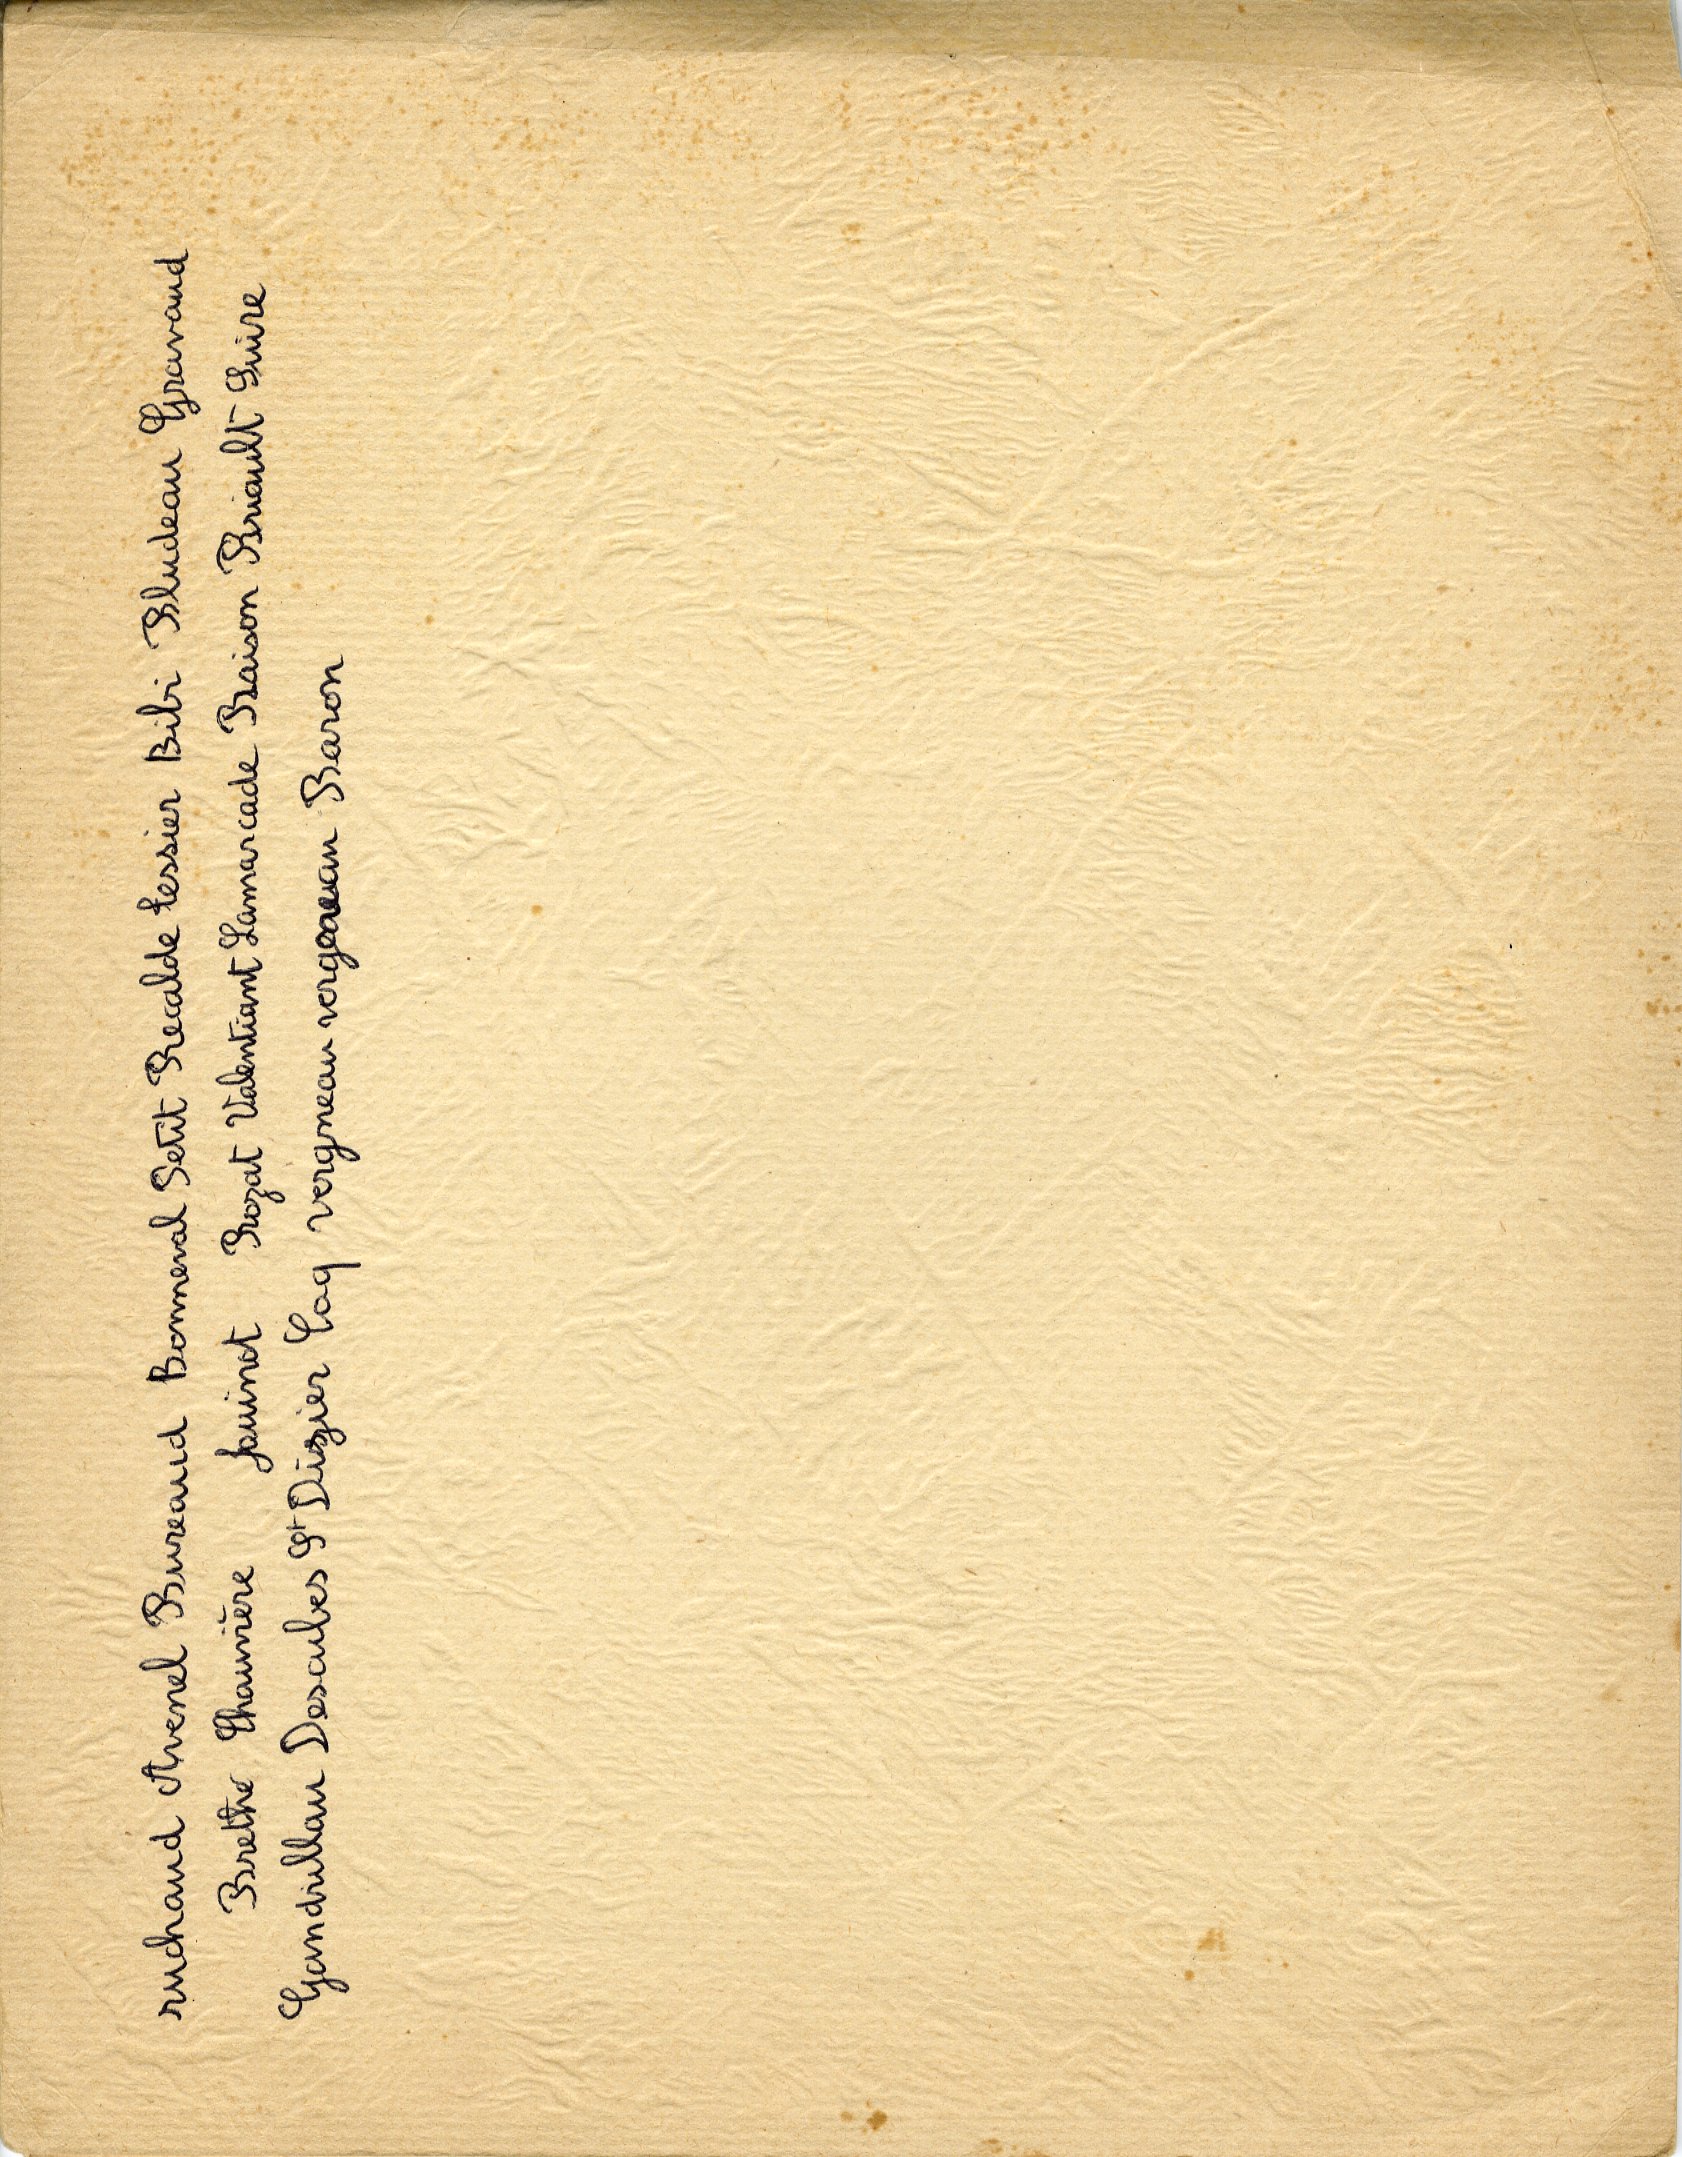 ruchaud Avenel Bureaud Bonneval Petit Recalde tessier Bibi Bludeau Gravaud
Brethe Chauvière Jauinot Rozat Valentiant Lamarcade Baison Briault Suire
Gandrillau Descubes St Dizier Coq vergneau vergereau Baron